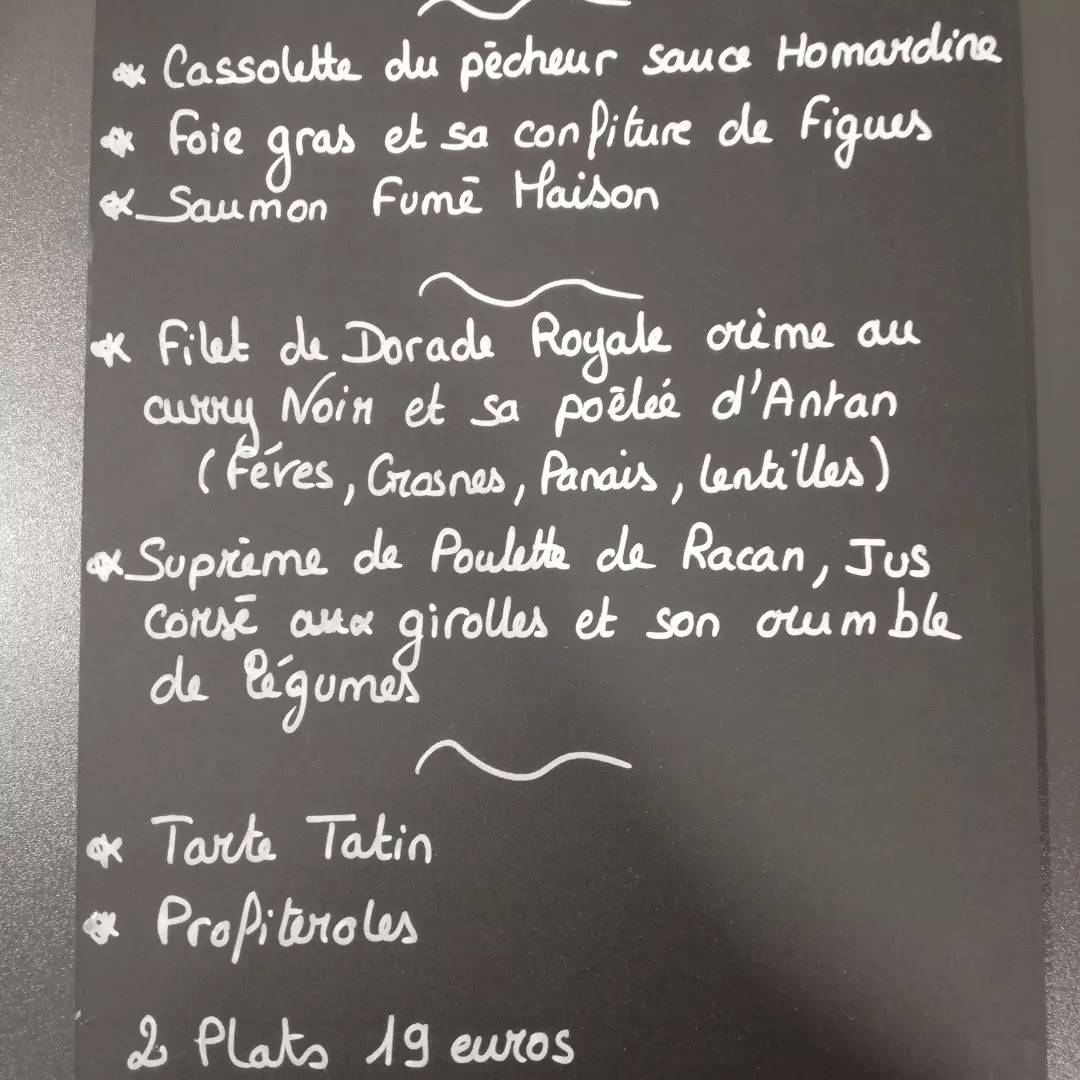 * Cassolette du pêcheur sauce Homardine
* Foie gras et sa confiture de Figues
* Saumon Fumé Maison
* Filet de Dorade Royale crème au
curry Noir et sa poêlée d'Antan
(Féves, Crosnes, Panais, lentilles)
* Suprème de Poulette de Racan, Jus
corsé aux girolles et son crumble
de légumes
* Tarte Tatin
* Profiteroles
2 Plats 19 euros